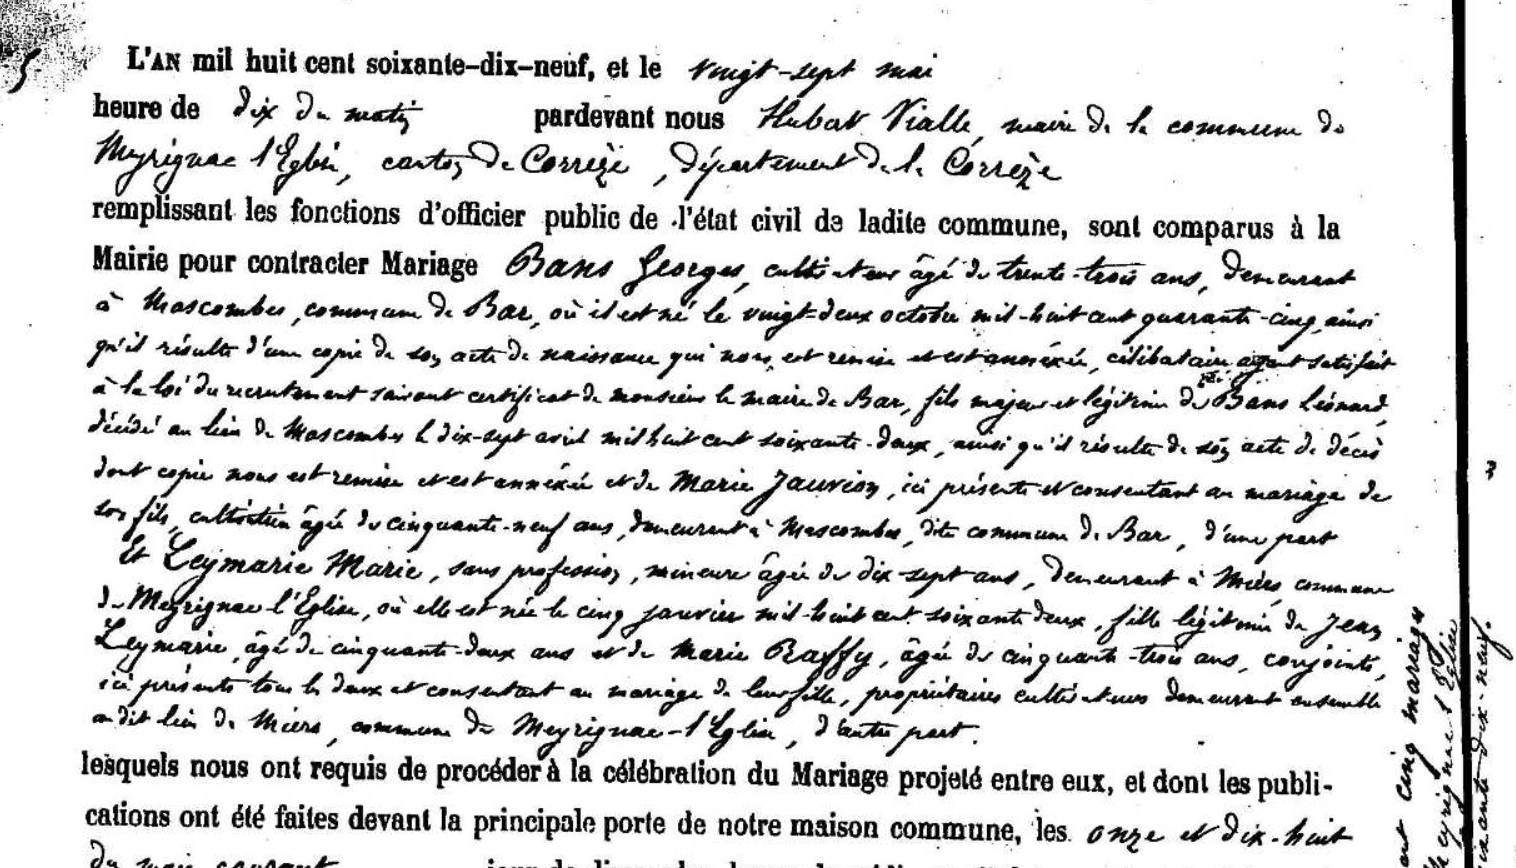 5
L'AN mil huit cent soixante-dix-neuf, et le vingt-sept mai
heure de dix du matin pardevant nous Hubert Vialle, maire de la commune de
Meyrignac l'Eglise, canton de Corrèze, département de la Corrèze
remplissant les fonctions d'officier public de l'état civil de ladite commune, sont comparus à la
Mairie pour contracter Mariage Bans Georges, cultivateur âgé de trente-trois ans, demeurant
à Mascombes, commune de Bar, où il est né le vingt-deux octobre mil-huit cent quarante-cinq, ainsi
qu'il résulte d'une copie de son acte de naissance qui nous est remise et est annexée, célibataire ayant satisfait
à la loi du recrutement suivant certificat de monsieur le maire de Bar, fils majeur et légitime de Bans Léonard,
décédé au lieu de Mascombes le dix-sept avril mil huit cent soixante-deux, ainsi qu'il résulte de son acte de décès
dont copie nous est remise et est annexée et de Marie Jauvion, ici présente et consentant au mariage de
son fils, cultivatrice âgée de cinquante-neuf ans, demeurant à Mascombes, dite commune de Bar, d'une part
Et Leymarie Marie, sans profession, mineure âgée de dix-sept ans, demeurant à Miers, commune
de Meyrignac l'Eglise, où elle est née le cinq janvier mil-huit cent soixante deux, fille légitime de Jean
Leymarie, âgé de cinquante-deux ans et de Marie Raffy, âgée de cinquante-trois ans, conjoints,
ici présents tous les deux et consentant au mariage de leur fille, propriétaires cultivateurs demeurant ensemble
au dit lieu de Miers, commune de Meyrignac-l'Eglise, d'autre part.
lesquels nous ont requis de procéder à la célébration du Mariage projeté entre eux, et dont les publi-
cations ont été faites devant la principale porte de notre maison commune, les onze et dix-huit
du mois courant
cinq mariages
Meyrignac l'Eglise
soixante dix-neuf.